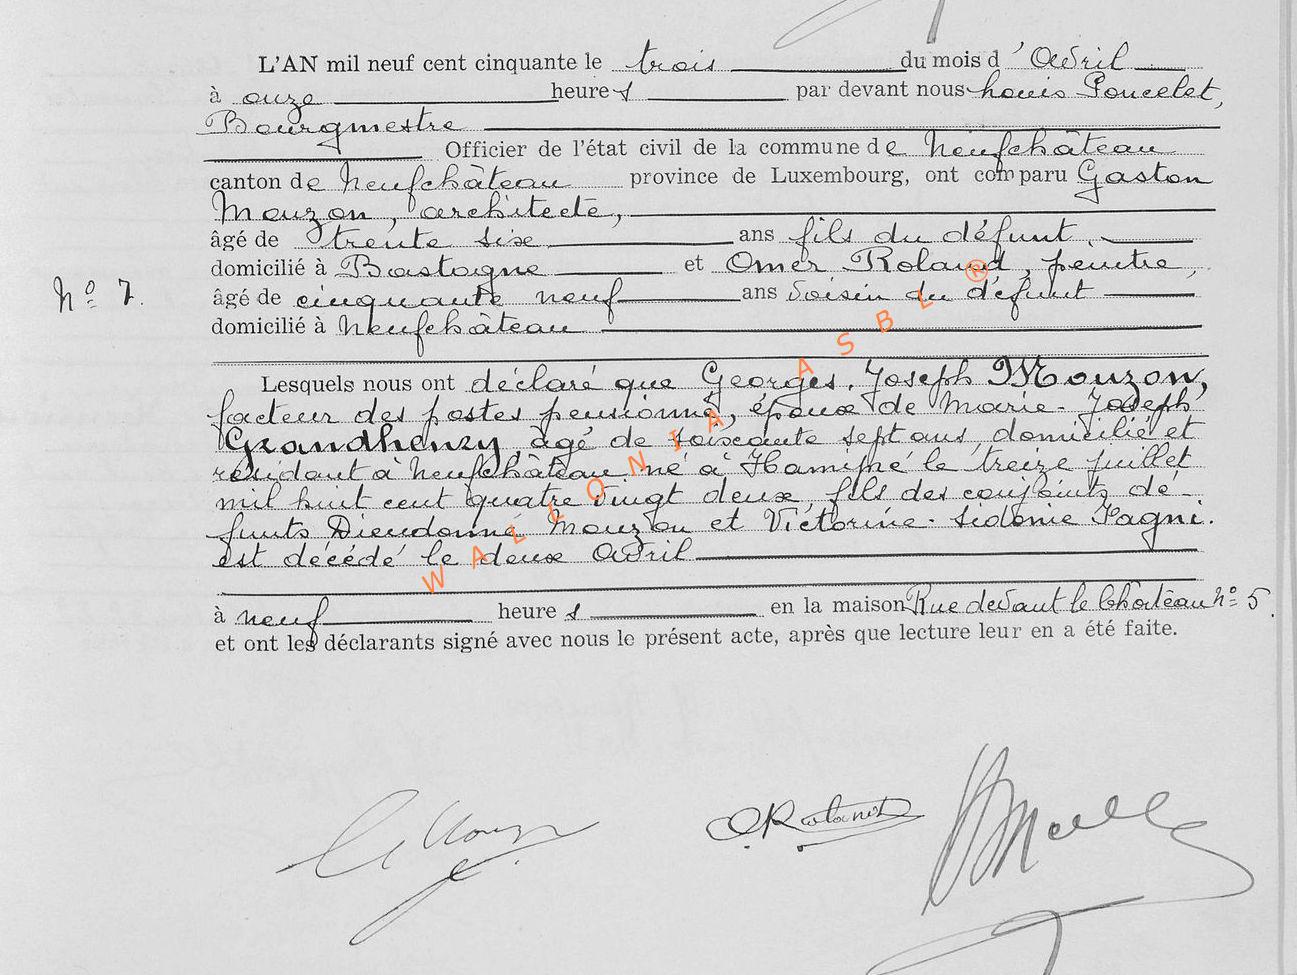 L'AN mil neuf cent cinquante le trois du mois d'Avril
à onze heures par devant nous Louis Poncelet,
Bourgmestre
Officier de l'état civil de la commune de Neufchâteau
canton de Neufchâteau province de Luxembourg, ont comparu Gaston
Mouzon, architecte,
âgé de trente six ans fils du défunt,
domicilié à Bastogne et Omer Roland, peintre,
N° 7.
âgé de cinquante neuf ans voisin du défunt
domicilié à Neufchâteau
Lesquels nous ont déclaré que Georges, Joseph Mouzon,
facteur des postes pensionné, époux de Marie-Joseph
Grandhenry, âgé de soixante sept ans, domicilié et
résidant à Neufchâteau, né à Hamipré le treize juillet
mil huit cent quatre vingt deux, fils des conjoints dé-
funts Dieudonné Mouzon et Victorine-Sidonie Fagni.
est décédé le deux Avril
à neuf heures en la maison Rue devant le Château N° 5.
et ont les déclarants signé avec nous le présent acte, après que lecture leur en a été faite.
WALLONIA ASBL ®
O Roland